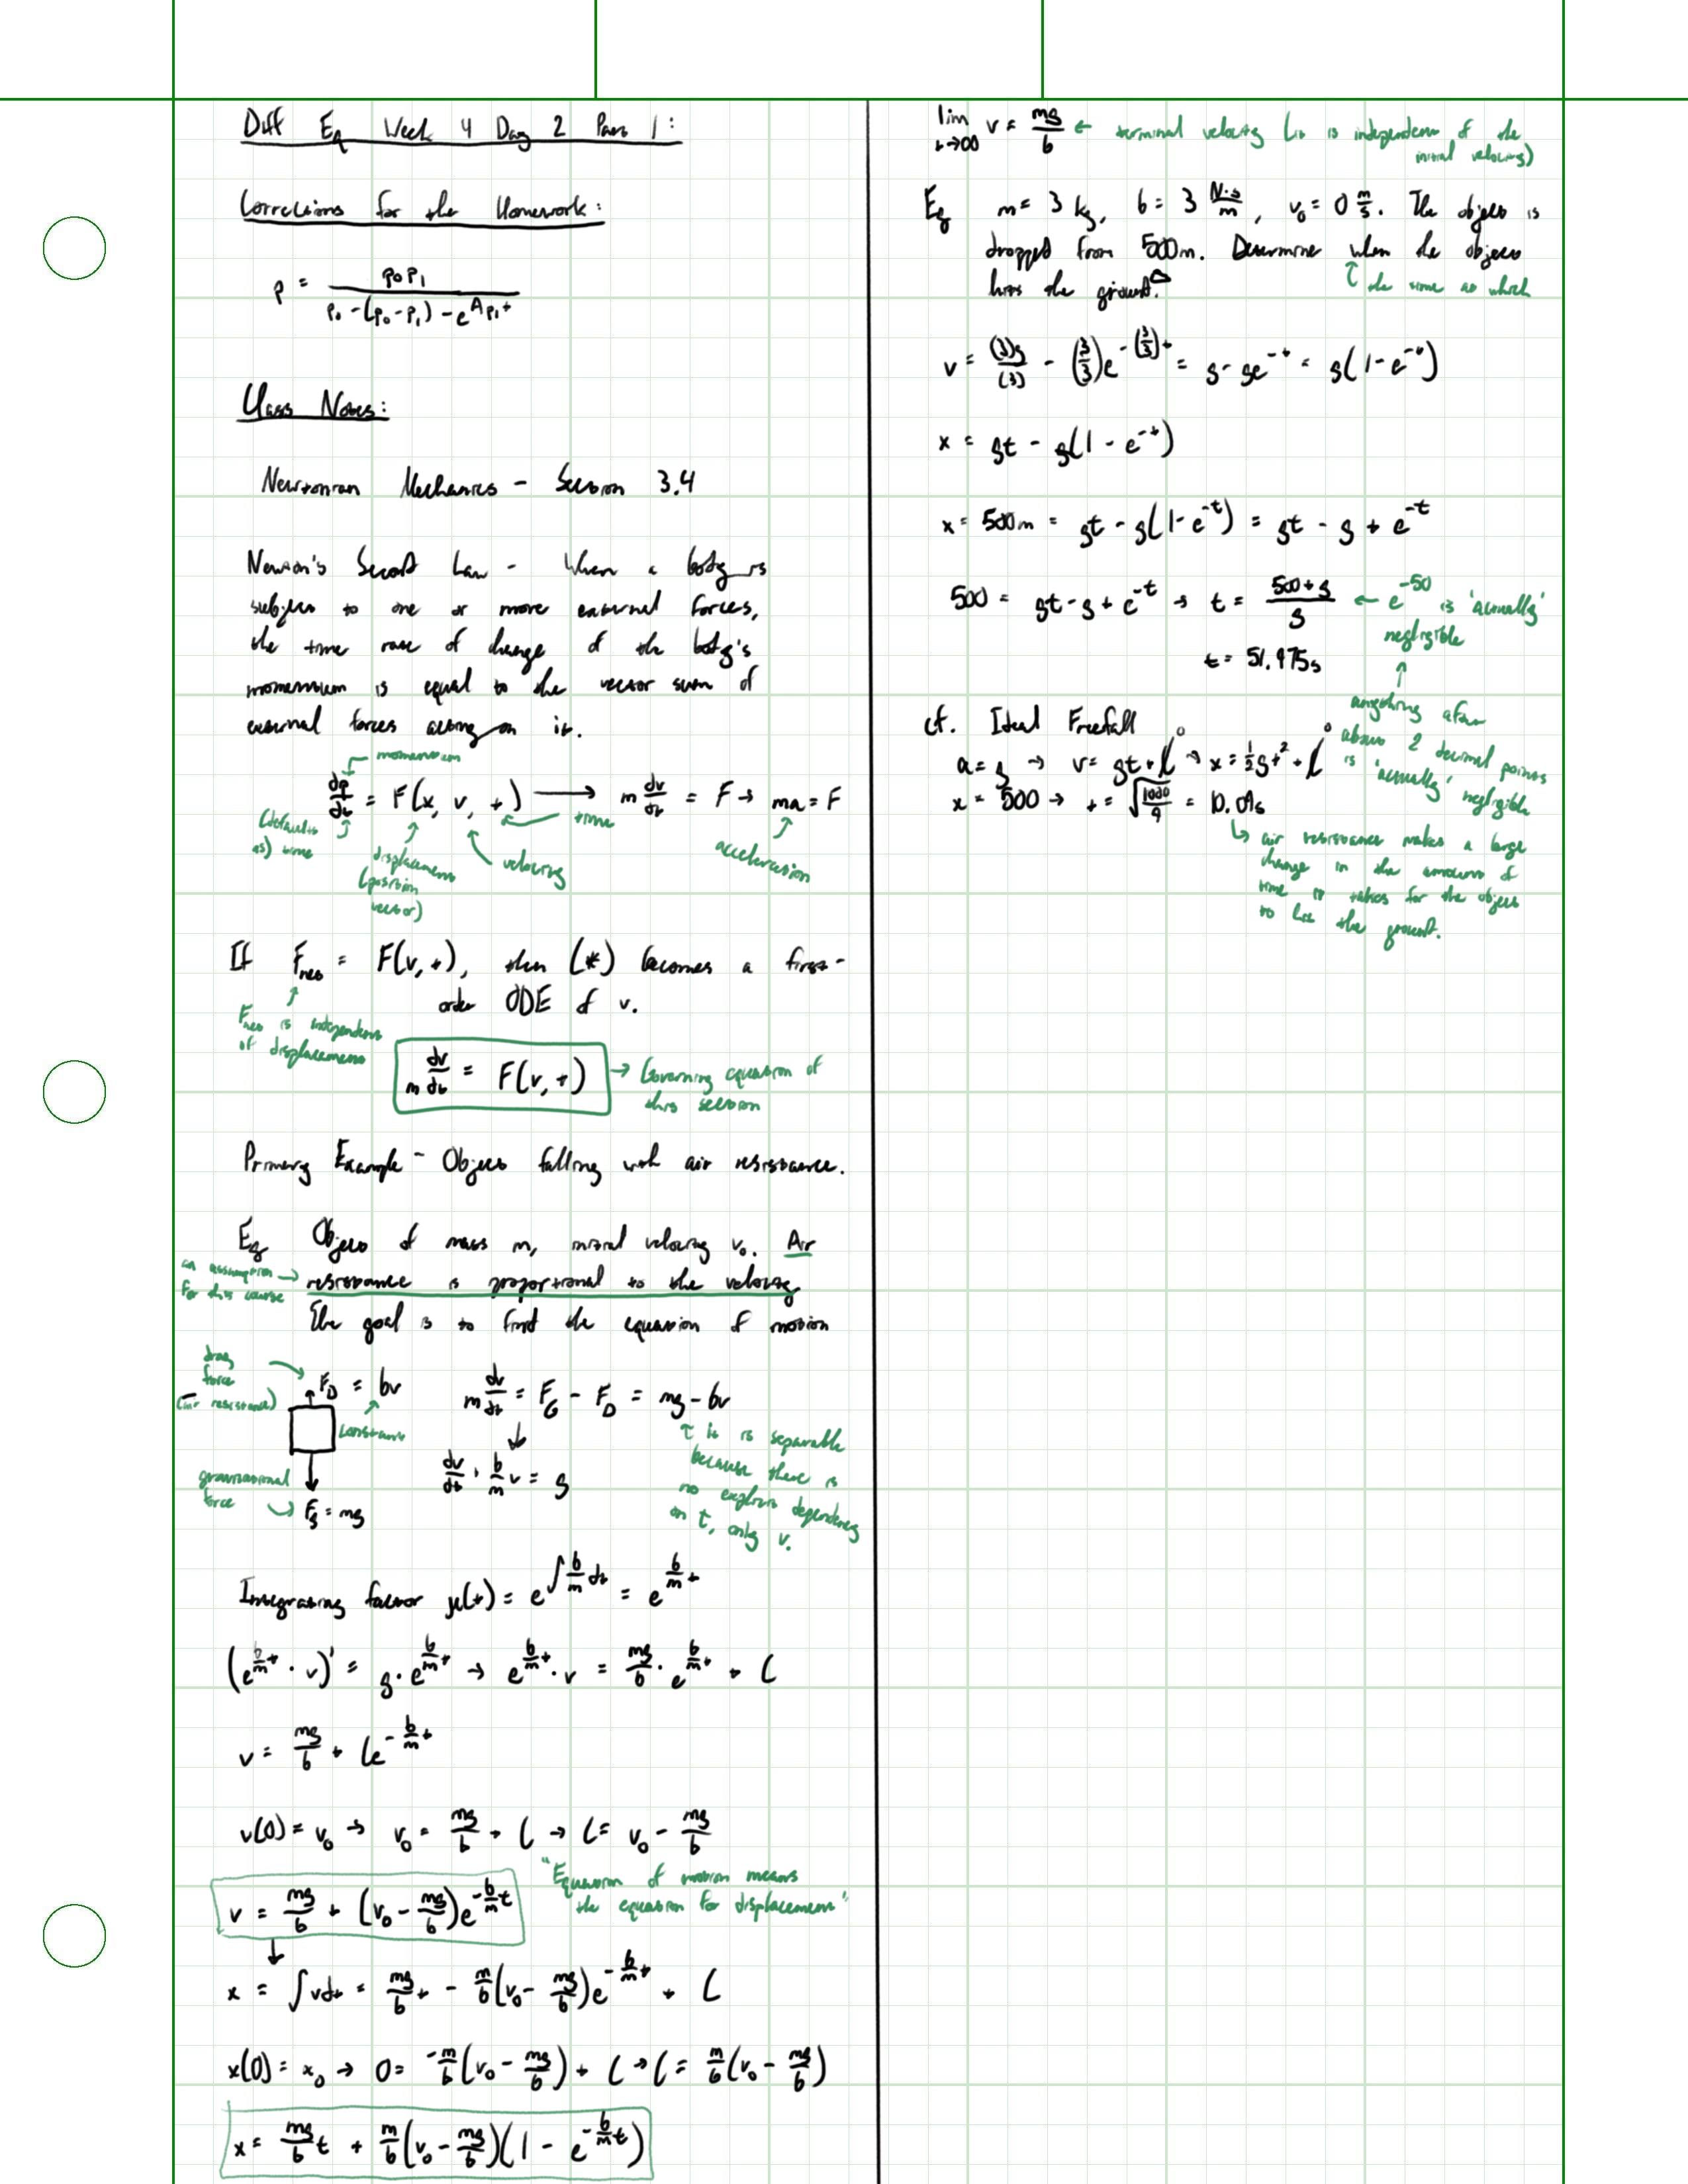 Diff Eq Week 4 Day 2 Part 1:
Corrections for the Homework:
p = p₀p₁ / (p₀ - (p₀ - p₁) - e^(Ap₁t))
Class Notes:
Newtonian Mechanics - Section 3.4
Newton's Second Law - When a body is
subject to one or more external forces,
the time rate of change of the body's
momentum is equal to the vector sum of
external forces acting on it.
← momentum
dp/dt = F(x, v, t) → m dv/dt = F → ma = F
(default as) time
displacement (position vector)
velocity
time
acceleration
If F_net = F(v, t), then (*) becomes a first-
order ODE of v.
F_net is independent
of displacement
m dv/dt = F(v, t) → Governing equation of
this section
Primary Example - Object falling with air resistance.
Eg Object of mass m, initial velocity v₀. Air
an assumption → resistance is proportional to the velocity
for this course
The goal is to find the equation of motion
drag
force
(air resistance)
F_D = bv
constant
gravitational
force
F_g = mg
m dv/dt = F_G - F_D = mg - bv
↓
dv/dt + b/m v = g
↑ it is separable
because there is
no explicit dependency
on t, only v.
Integrating factor μ(t) = e^(∫ b/m dt) = e^(b/m t)
(e^(b/m t) · v)' = g · e^(b/m t) → e^(b/m t) · v = mg/b · e^(b/m t) + C
v = mg/b + Ce^(-b/m t)
v(0) = v₀ → v₀ = mg/b + C → C = v₀ - mg/b
v = mg/b + (v₀ - mg/b)e^(-b/m t)
"Equation of motion means
the equation for displacement"
↓
x = ∫vdt = mg/b t - m/b(v₀ - mg/b)e^(-b/m t) + C
x(0) = x₀ → 0 = -m/b(v₀ - mg/b) + C → C = m/b(v₀ - mg/b)
x = mg/b t + m/b(v₀ - mg/b)(1 - e^(-b/m t))
lim t→∞ v = mg/b ← terminal velocity (it is independent of the
initial velocity)
Eg m = 3 kg, b = 3 N·s/m, v₀ = 0 m/s. The object is
dropped from 500m. Determine when the object
hits the ground.
↑ the time at which
v = (3)g/(3) - (3/3)e^(-(3/3)t) = g - ge^(-t) = g(1 - e^(-t))
x = gt - g(1 - e^(-t))
x = 500m = gt - g(1 - e^(-t)) = gt - g + e^(-t)
500 = gt - g + e^(-t) → t = (500 + g)/g ← e^(-50) is 'actually'
negligible
t = 51.975s
anything after
about 2 decimal points
is 'actually' negligible
cf. Ideal Freefall
a = g → v = gt + C⁰ → x = ½gt² + C⁰
x = 500 → t = √(1000/g) = 10.09s
↳ air resistance makes a large
change in the amount of
time it takes for the object
to hit the ground.